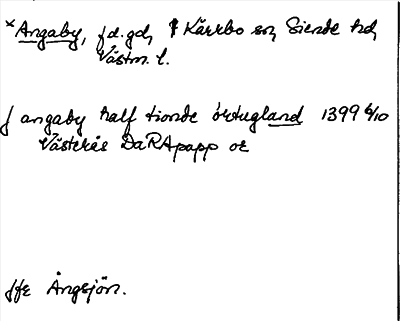 *Angaby, f.d. gd, Kärrbo sn, Siende hd,
Västm. l.
J angaby half tionde örtugland 1399 6/10
Västerås DaRApapp or
Jfr Ängsjön.